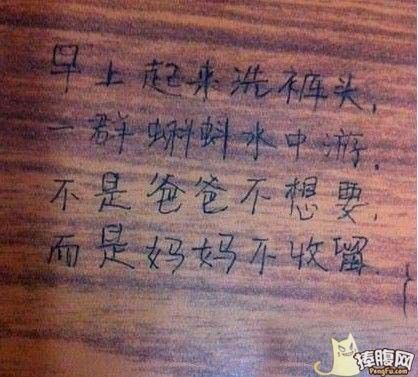 早上起来洗裤头,
一群蝌蚪水中游.
不是爸爸不想要,
而是妈妈不收留.
捧腹网
PengFu.com